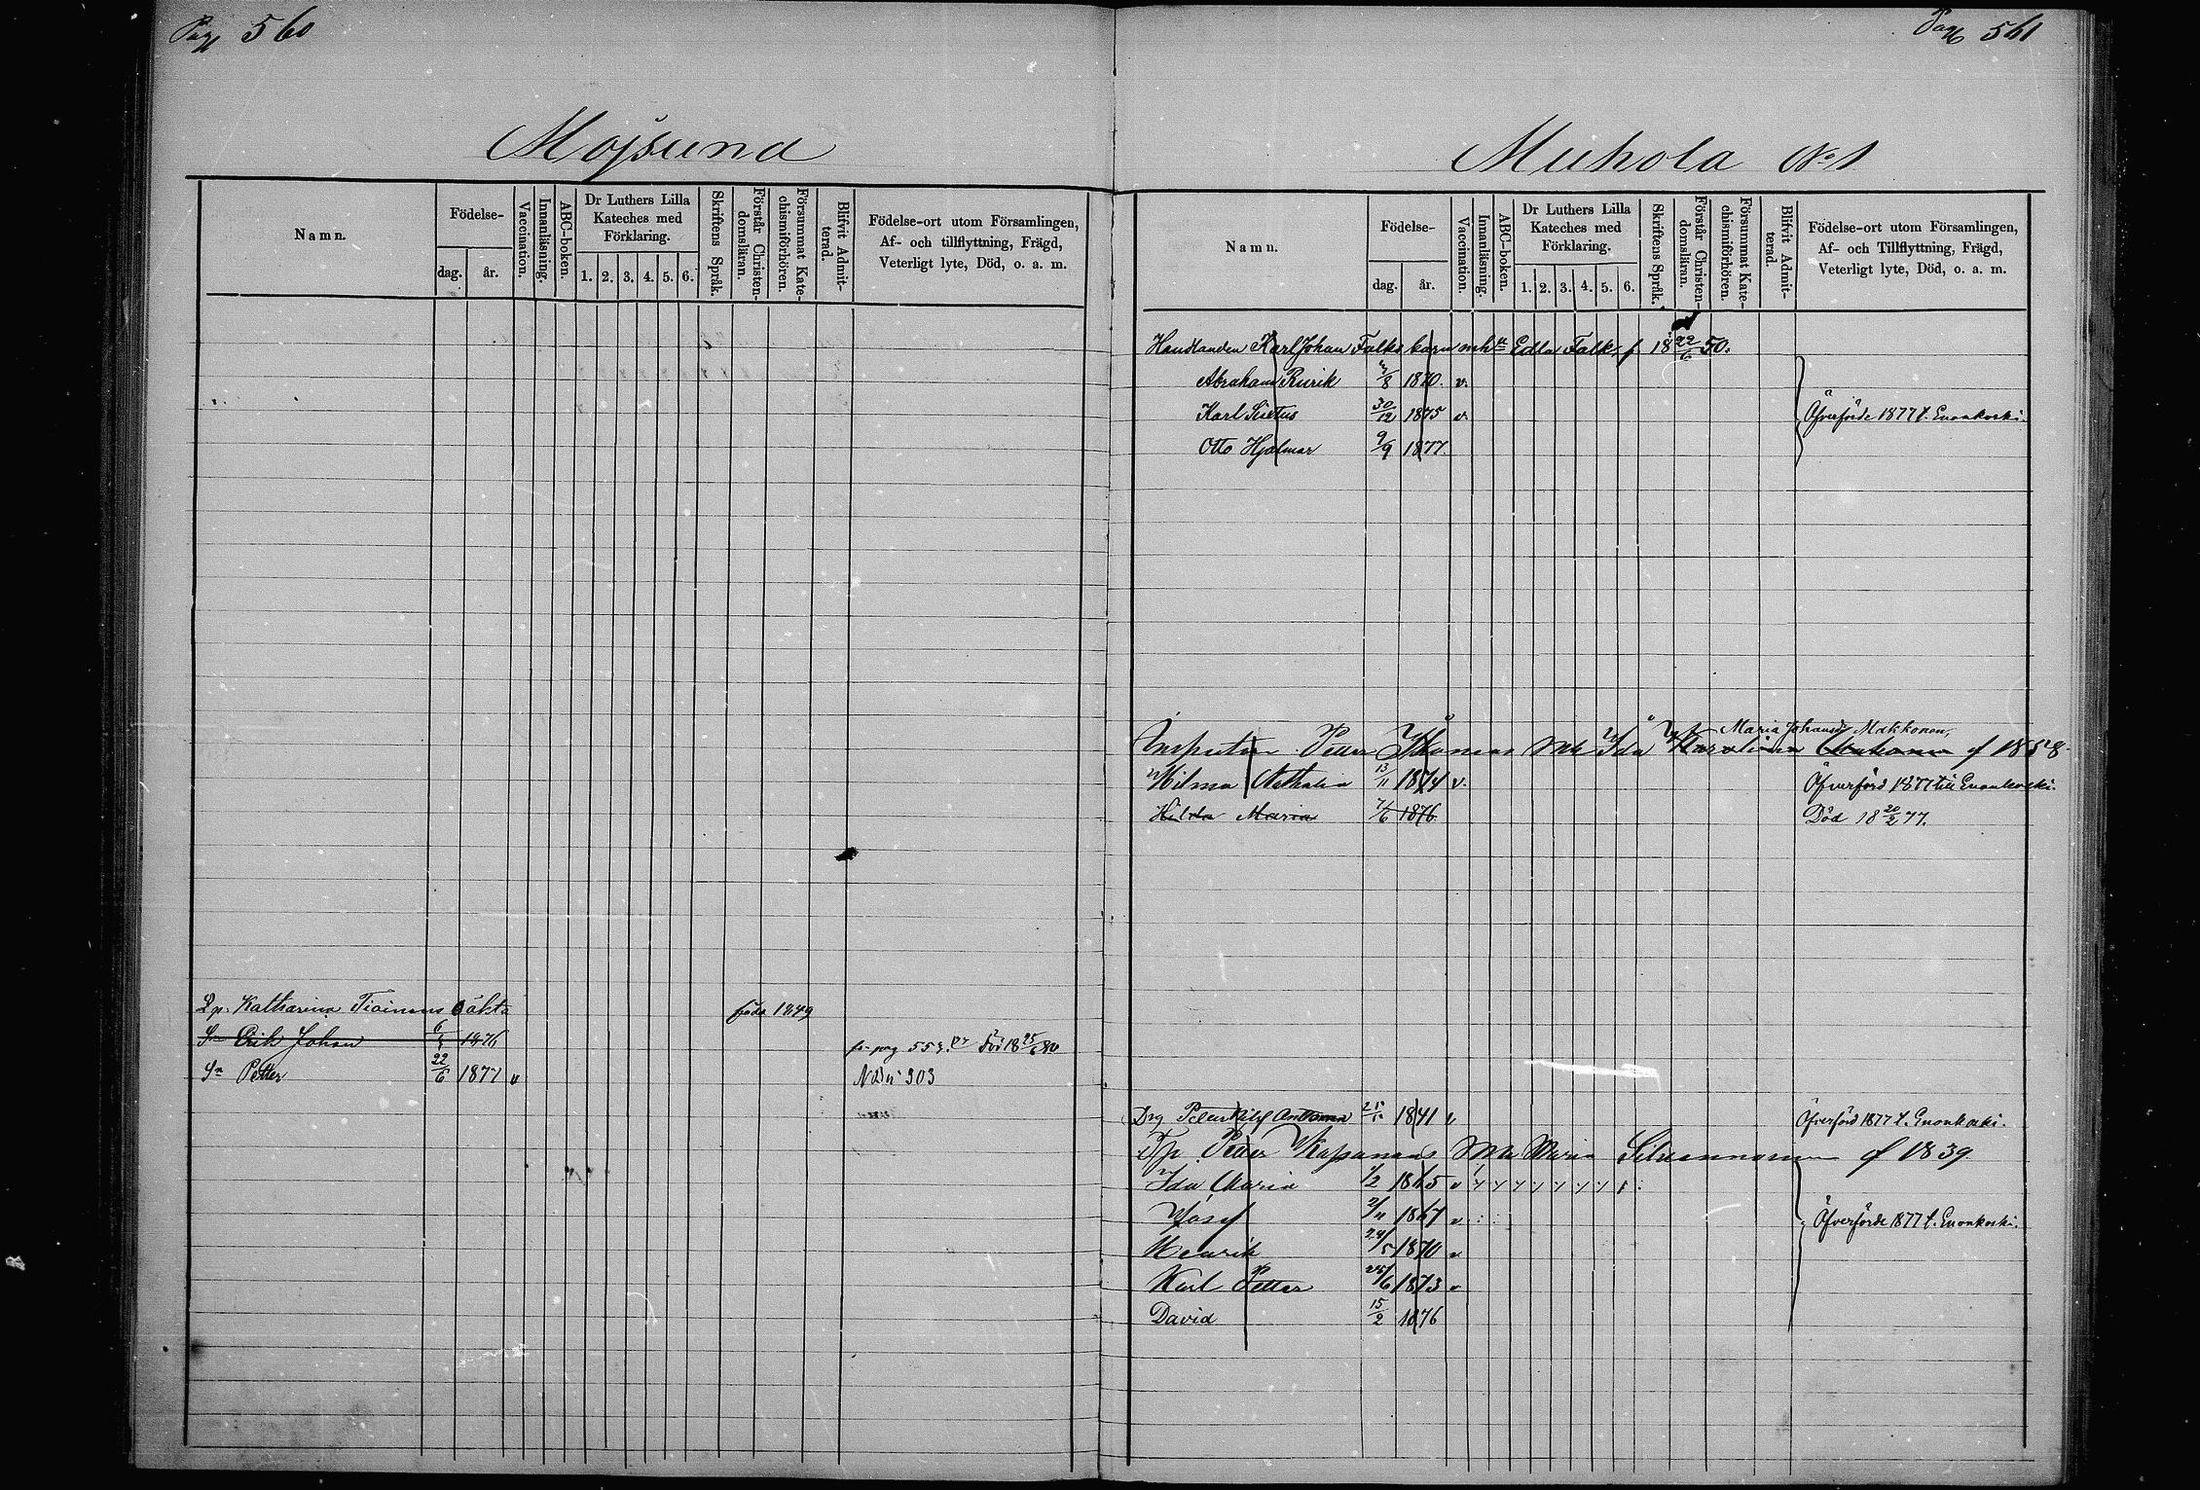 Pag 560
Mojsund
Namn.
Födelse-
dag.
år.
Vaccination.
Innanläsning.
ABC-boken.
Dr Luthers Lilla
Kateches med
Förklaring.
1. 2. 3. 4. 5. 6.
Skriftens Språk.
Förstår Christen-
domsläran.
Försummat Kate-
chismiförhören.
Blifvit Admit-
terad.
Födelse-ort utom Församlingen,
Af- och tillflyttning, Frägd,
Veterligt lyte, Död, o. a. m.
Lp. Katharina Tiainens oäkta född 1849
Sn Erik Johan 1876 pag 553. Död 18 25/6 80
Sn Petter 22/6 1877 v 303
Pag 561
Muhola No 1
Namn.
Födelse-
dag.
år.
Vaccination.
Innanläsning.
ABC-boken.
Dr Luthers Lilla
Kateches med
Förklaring.
1. 2. 3. 4. 5. 6.
Skriftens Språk.
Förstår Christen-
domsläran.
Försummat Kate-
chismiförhören.
Blifvit Admit-
terad.
Födelse-ort utom Församlingen,
Af- och Tillflyttning, Frägd,
Veterligt lyte, Död, o. a. m.
Handlanden Karl Johan Falks barn Edla Falk, f 18 22/6 50.
Abraham Rurik 1870. v.
Karl Sixtus 30/12 1875 v Öfverförde 1877 t. Enonkoski.
Otto Hjalmar 9/9 1877.
Maria Johansdr Makkonen,
Petter Mh Ida Karolina f 1858
Hilma Nathalia 13/11 1874 v. Öfverförd 1877 till Enonkoski.
Hilda Maria 1876. Död 18 20/2 77.
Drg Peter 1841 v Öfverförd 1877 t. Enonkoski.
Petter Kapanens Maria Silvennoinen f 1839
Ida Maria 1/2 1865 v
Josef 2/11 1867 v Öfverförde 1877 t. Enonkoski.
Henrik 24/5 1870 v
Karl Petter 25/6 1873 v
David 15/2 1876